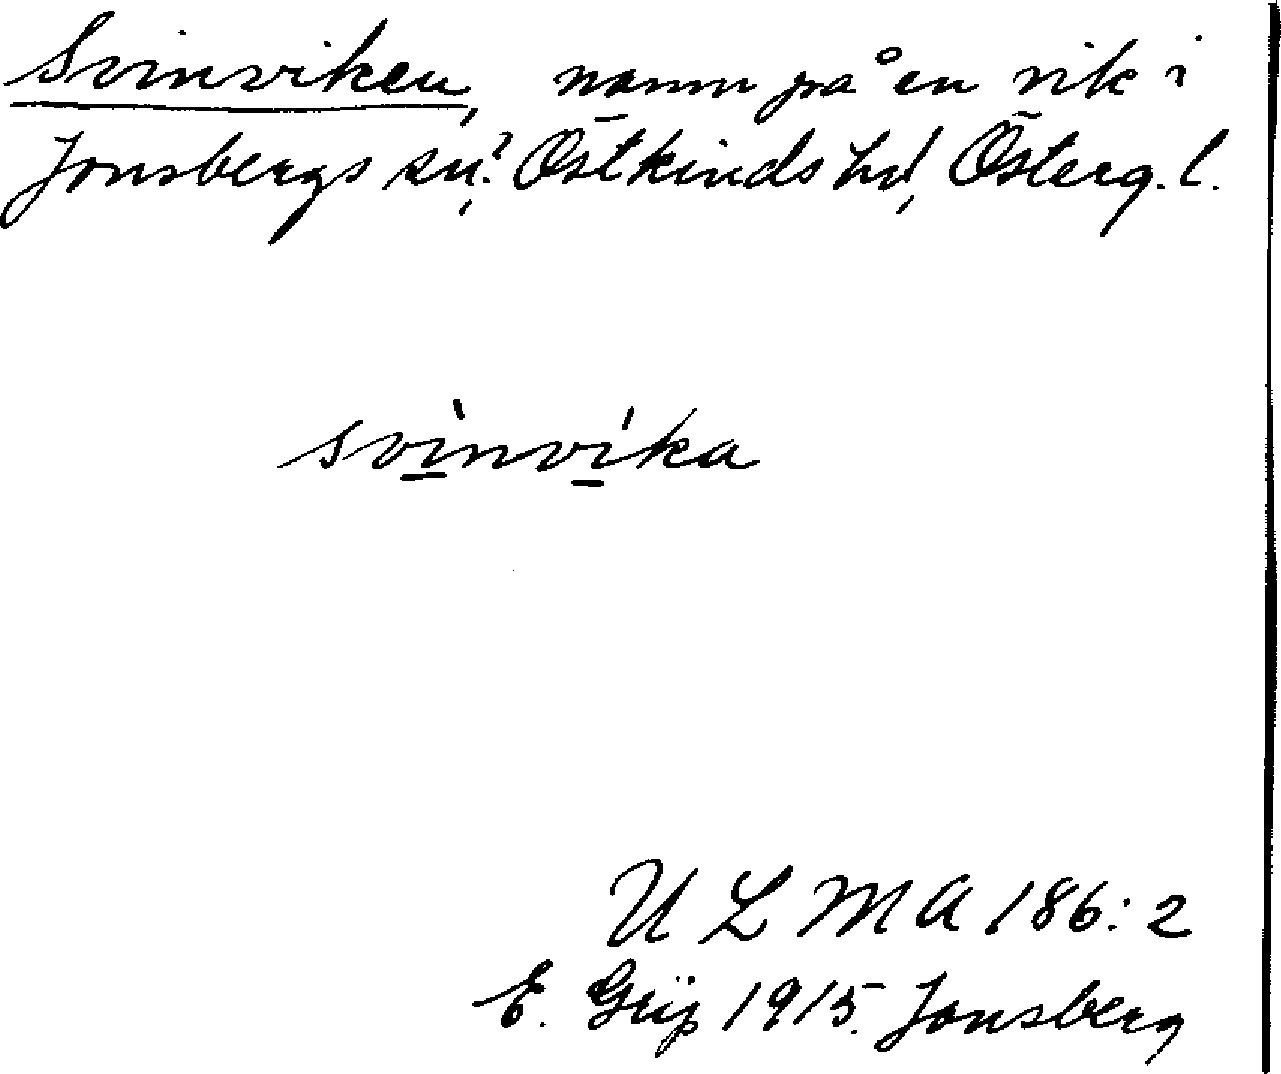 Svinviken, namn på en vik i
Jonsbergs sn?, Östkinds hd, Österg. l.
svìnvíka
ULMA 186:2
E. Grip 1915. Jonsberg